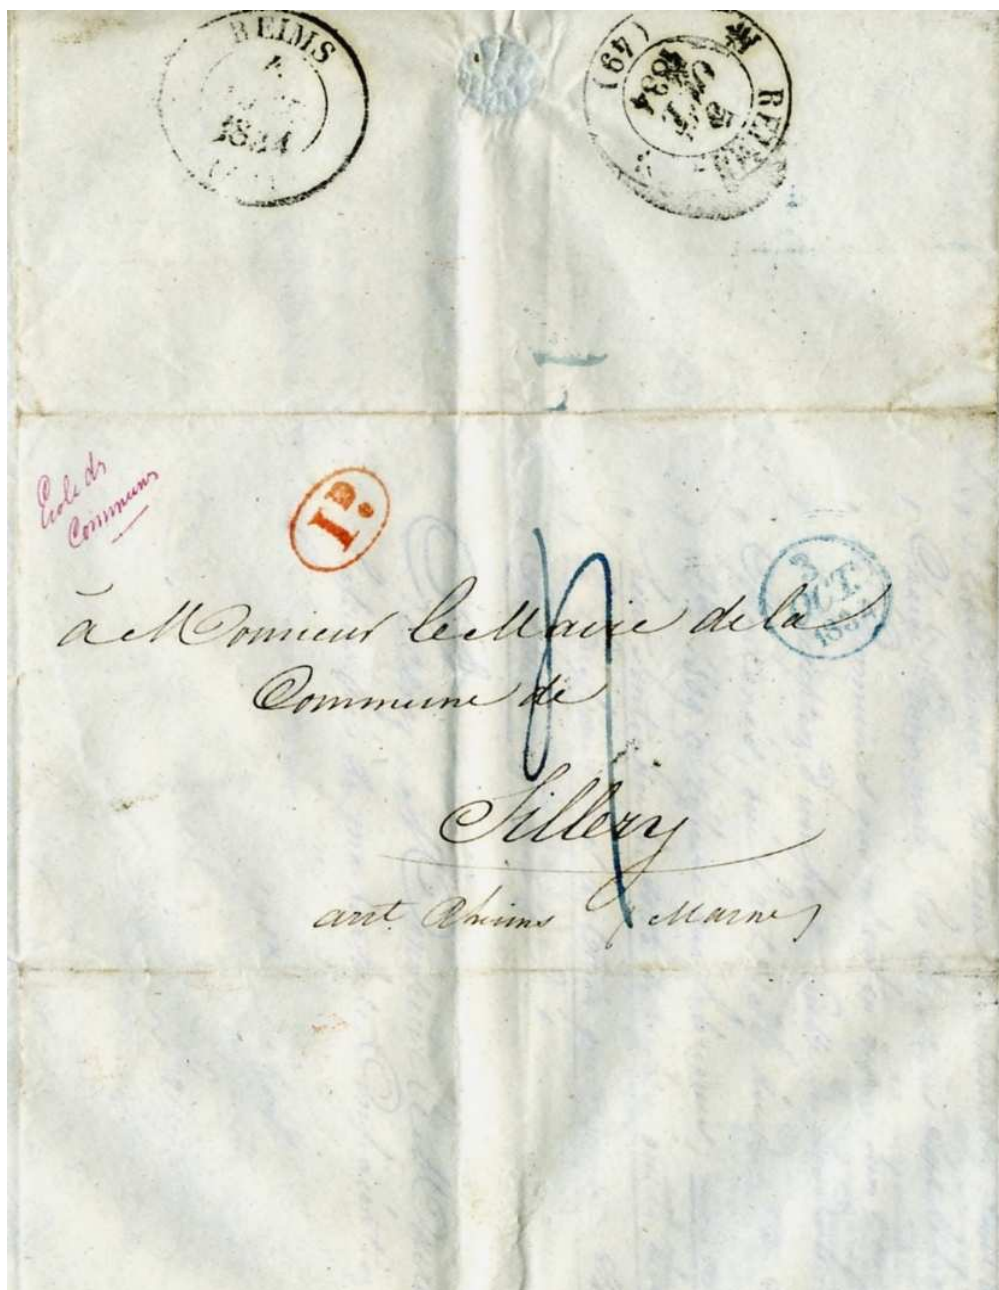 REIMS
1834
REIMS
5
OCT
1834
(49)
École des
Communes
1D.
3
OCT.
1834
à Monsieur le Maire de la
Commune de
Sillery
arrt. Rheims (Marne)